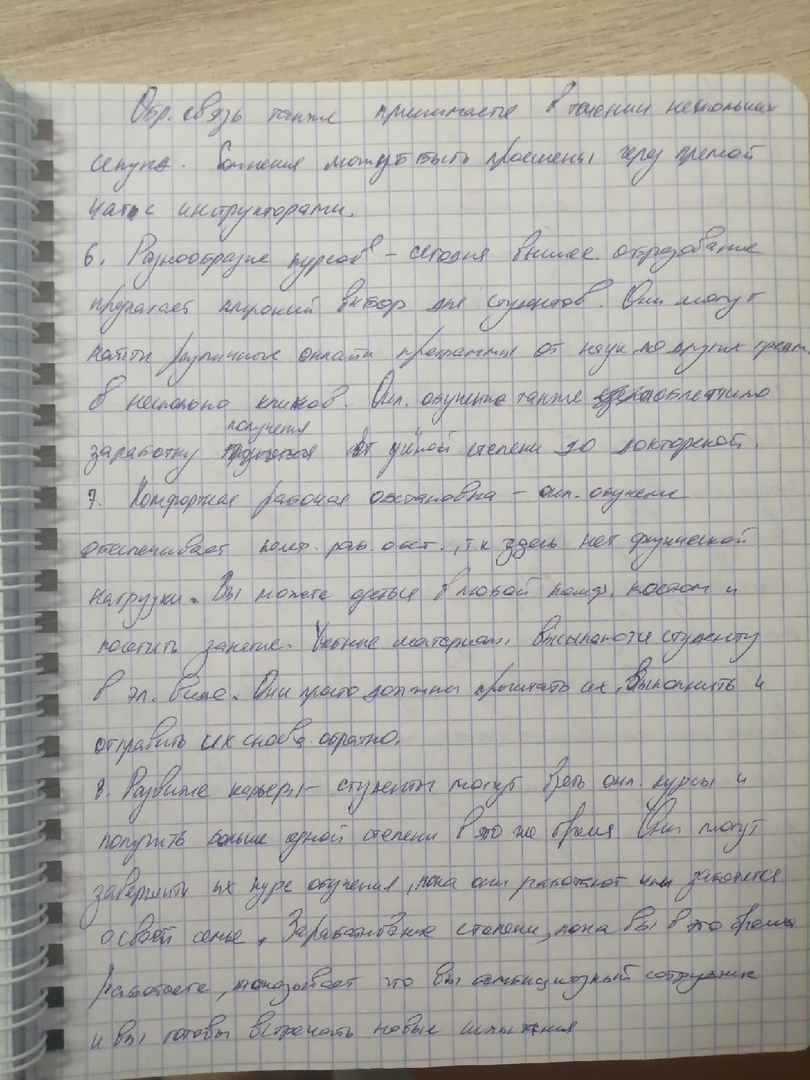 Обр. связь также принимается в течении нескольких
секунд. Сомнения могут быть прояснены через прямой
чат с инструкторами.
6. Разнообразие курсов – сегодня высшее образование
предлагает широкий выбор для студентов. Они могут
найти различные онлайн программы от наук до других
в несколько кликов. Онл. обучение также облегчило
получения
заработку от учёной степени до докторской.
7. Комфортная рабочая обстановка – онл. обучение
обеспечивает комф. раб. обст., т.к здесь нет физической
нагрузки. Вы можете одеться в любой комф. костюм и
посетить занятие. Учебные материалы высылаются студенту
в эл. виде. Они просто должны прочитать их, выполнить и
отправить их снова обратно.
8. Развитие карьеры – студенты могут брать онл. курсы и
получить больше одной степени в это же время. Они могут
завершить их курс обучения, пока они работают или заботятся
о своей семье. Зарабатывание степени, пока вы в это время
работаете, показывает что вы амбициозный сотрудник
и вы готовы встречать новые испытания